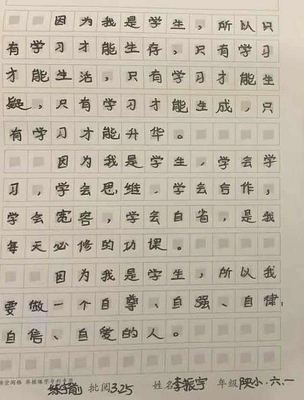 因为我是学生，所以只
有学习才能生存，只有学习
才能生活，只有学习才能生
疑，只有学习才能生成，只
有学习才能升华。
因为我是学生，学会学
习，学会思维，学会合作，
学会宽容，学会自省，是我
每天必修的功课。
因为我是学生，所以我
要做一个自尊、自强、自律、
自信、自爱的人。
批阅 325 姓名 李振宇 年级 陕小.六.一